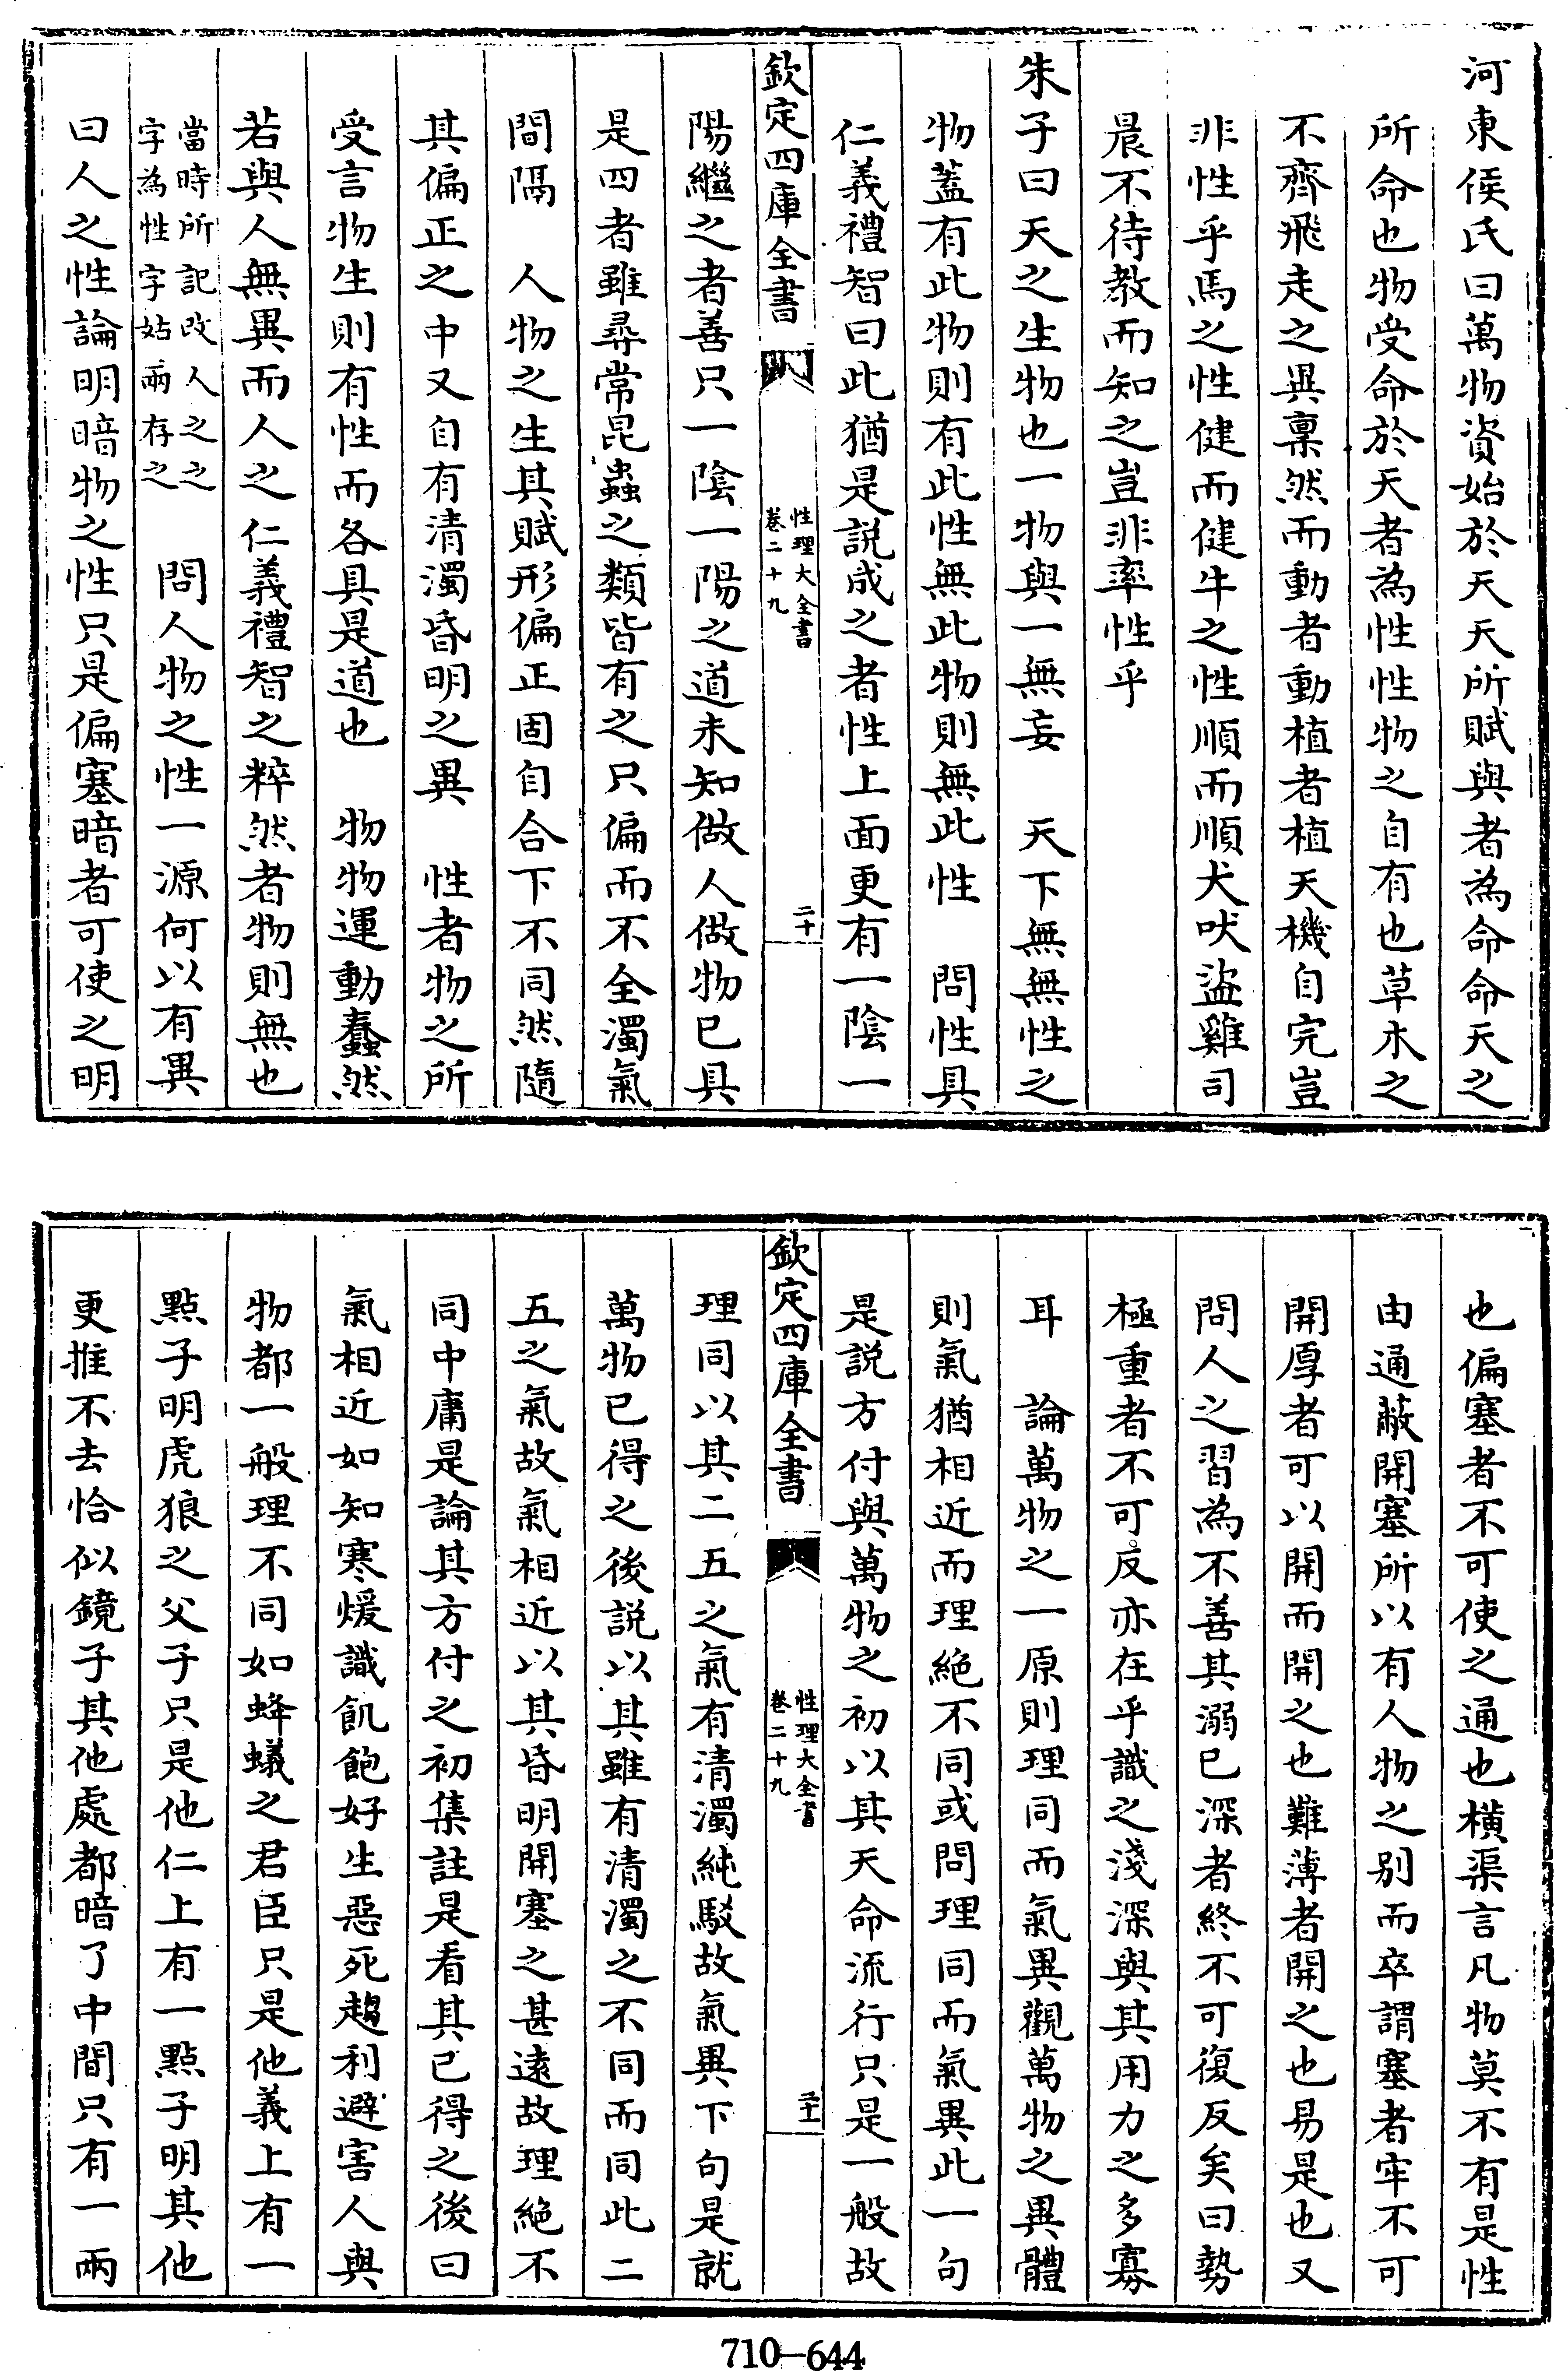 河東侯氏曰萬物資始於天天所賦與者為命命天之
所命也物受命於天者為性性物之自有也草木之
不齊飛走之異稟然而動者動植者植天機自完豈
非性乎馬之性健而健牛之性順而順犬吠盜雞司
晨不待教而知之豈非率性乎
朱子曰天之生物也一物與一無妄　天下無無性之
物蓋有此物則有此性無此物則無此性　問性具
仁義禮智曰此猶是説成之者性上面更有一陰一
欽定四庫全書
性理大全書
卷二十九
二十
陽繼之者善只一陰一陽之道未知做人做物已具
是四者雖尋常昆蟲之類皆有之只偏而不全濁氣
間隔　人物之生其賦形偏正固自合下不同然隨
其偏正之中又自有清濁昏明之異　性者物之所
受言物生則有性而各具是道也　物物運動蠢然
若與人無異而人之仁義禮智之粹然者物則無也
當時所記改人之之
字為性字姑兩存之
問人物之性一源何以有異
曰人之性論明暗物之性只是偏塞暗者可使之明
也偏塞者不可使之通也橫渠言凡物莫不有是性
由通蔽開塞所以有人物之别而卒謂塞者牢不可
開厚者可以開而開之也難薄者開之也易是也又
問人之習為不善其溺已深者終不可復反矣曰勢
極重者不可反亦在乎識之淺深與其用力之多寡
耳　論萬物之一原則理同而氣異觀萬物之異體
則氣猶相近而理絶不同或問理同而氣異此一句
是説方付與萬物之初以其天命流行只是一般故
欽定四庫全書
性理大全書
卷二十九
二十一
理同以其二五之氣有清濁純駁故氣異下句是就
萬物已得之後説以其雖有清濁之不同而同此二
五之氣故氣相近以其昏明開塞之甚遠故理絶不
同中庸是論其方付之初集註是看其已得之後曰
氣相近如知寒煖識飢飽好生惡死趨利避害人與
物都一般理不同如蜂蟻之君臣只是他義上有一
點子明虎狼之父子只是他仁上有一點子明其他
更推不去恰似鏡子其他處都暗了中間只有一兩
710-644